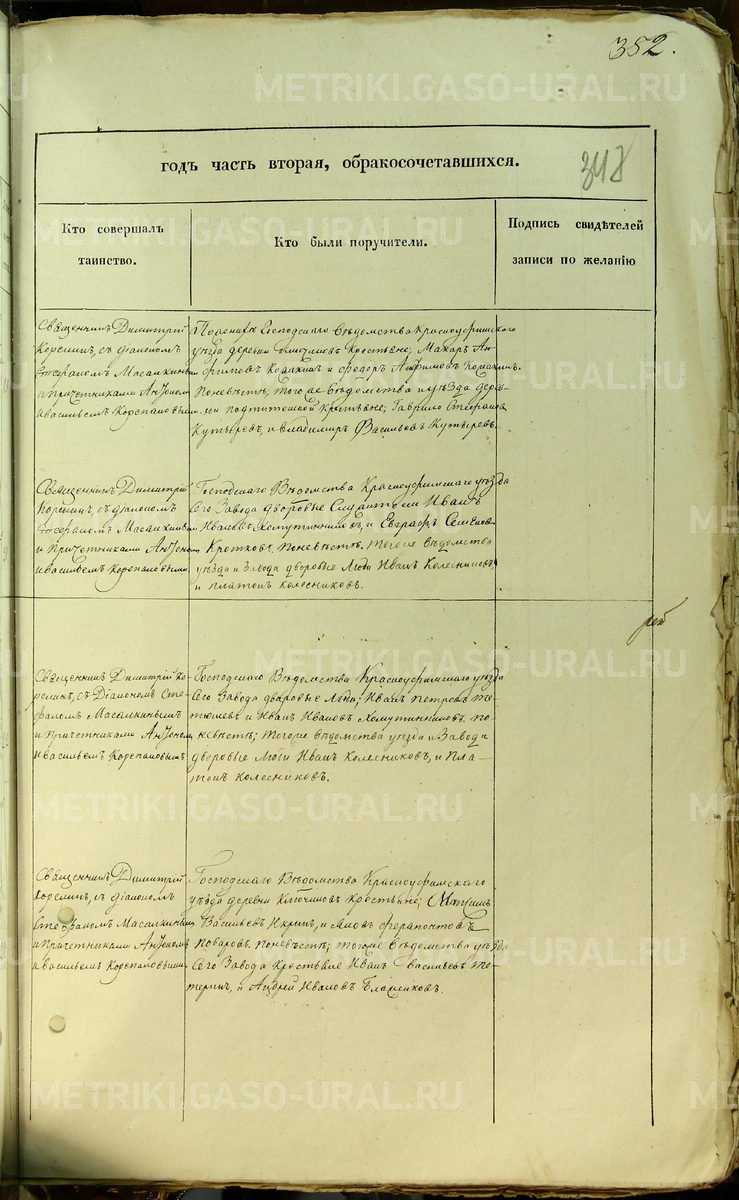 352.
METRIKI.GASO-URAL.RU
годъ часть вторая, обракосочетавшихся.
348
Кто совершалъ
таинство.
Кто были поручители.
Подпись свидѣтелей
записи по желанію
Священникъ Димитрій
Корелинъ, съ діакономъ
Стефаномъ Масалкинымъ
и причетниками
и васильемъ Корепановыми
По женихѣ Господскаго Вѣдомства Красноуфимскаго
уѣзда деревни Ключиковъ крестьяне; Макаръ Ан-
фимовъ и Федоръ Анфимовъ
По невѣстѣ; тогоже Вѣдомства и уѣзда дерев-
ни крестьяне; Гаврило
Кутыревъ, и Владимиръ Васильевъ Кутыревъ.
Священникъ Димитрій
Корелинъ, съ діакономъ
Стефаномъ Масалкинымъ
и Причетниками
и васильемъ Корепановыми
Господскаго Вѣдомства Красноуфимскаго уѣзда
Сего Завода дворовые Иванъ
Ивановъ Хомутинниковъ, и Евграфъ Семеновъ
Кротковъ. По невѣстѣ. Тогоже вѣдомства
уѣзда и Завода дворовые Люди Иванъ Колесниковъ,
и платонъ колесниковъ.
рей
Священникъ Димитрій Ко-
релинъ, съ Діакономъ Сте-
фаномъ Масалкинымъ
и Причетниками
и васильемъ Корепановымъ
Господскаго Вѣдомства Красноуфимскаго уѣзда
Сего Завода дворовые Люди; Иванъ петровъ Те-
тюшевъ и Иванъ Ивановъ Хомутинниковъ. по-
невѣстѣ; тогоже вѣдомства уѣзда и Завода
дворовые Люди Иванъ Колесниковъ, и Пла-
тонъ Колесниковъ.
Священникъ Димитрій
Корелинъ, съ діакономъ
Стефаномъ Масалкинымъ
и Причетниками
и васильемъ Корепановыми
Господскаго Вѣдомства Красноуфимскаго
уѣзда деревни Ключиковъ крестьяне; Максимъ
Васильевъ и Яковъ ферапонтовъ
Поваровъ. По невѣстѣ; тогоже вѣдомства уѣзда
Сего Завода крестьяне Иванъ васильевъ Те-
теринъ, и Андрей Ивановъ